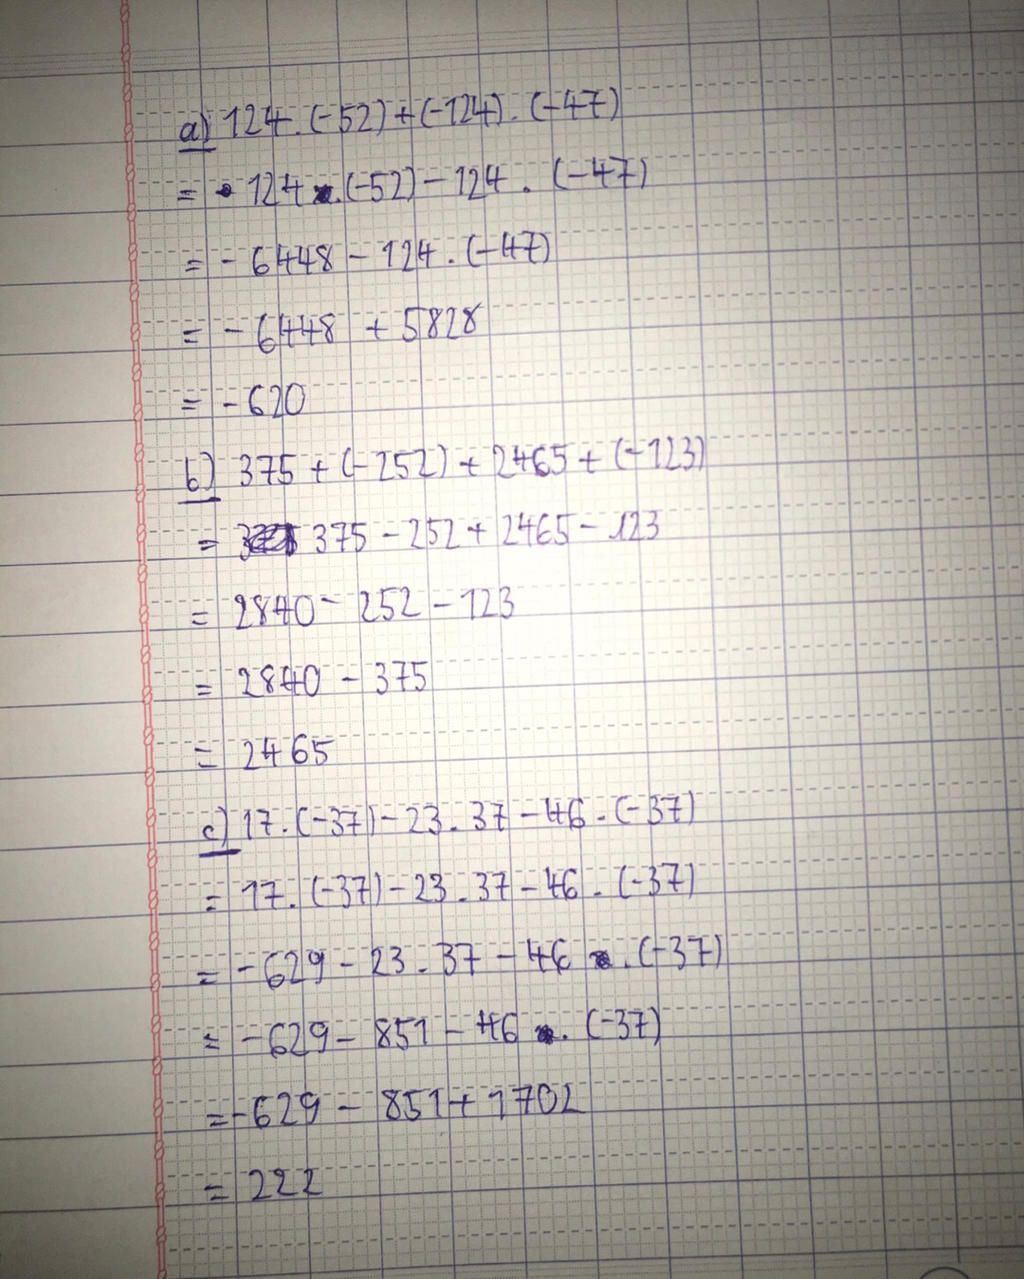 a) 124.(-52)+(-124).(-47)
= 124.(-52)-124.(-47)
= -6448-124.(-47)
= -6448+5828
= -620
b) 375+(-252)+2465+(-123)
= 375-252+2465-123
= 2840-252-123
= 2840-375
= 2465
c) 17.(-37)-23.37-46.(-37)
= 17.(-37)-23.37-46.(-37)
= -629-23.37-46.(-37)
= -629-851-46.(-37)
= -629-851+1702
= 222